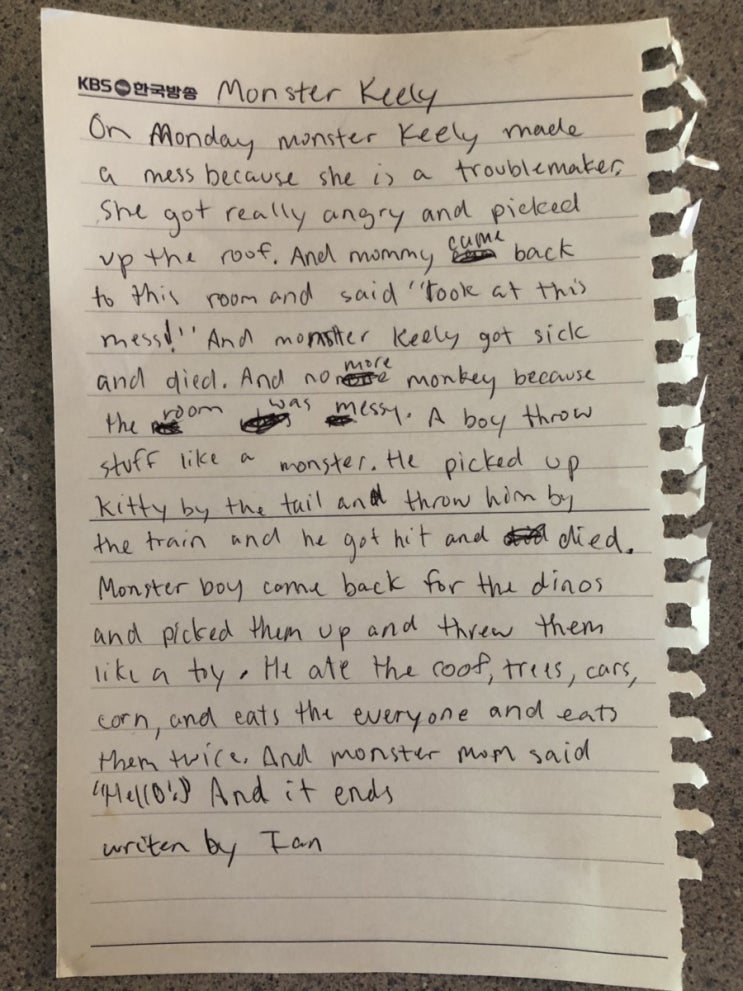 KBS 한국방송 Monster Keely
On Monday monster Keely made
a mess because she is a troublemaker.
She got really angry and picked
up the roof. And mommy came back
to this room and said "look at this
mess!" And monster Keely got sick
and died. And no more monkey because
the room was messy. A boy throw
stuff like a monster. He picked up
kitty by the tail and throw him by
the train and he got hit and died.
Monster boy came back for the dinos
and picked them up and threw them
like a toy. He ate the roof, trees, cars,
corn, and eats the everyone and eats
them twice. And monster mom said
"Hello!" And it ends
writen by Ian